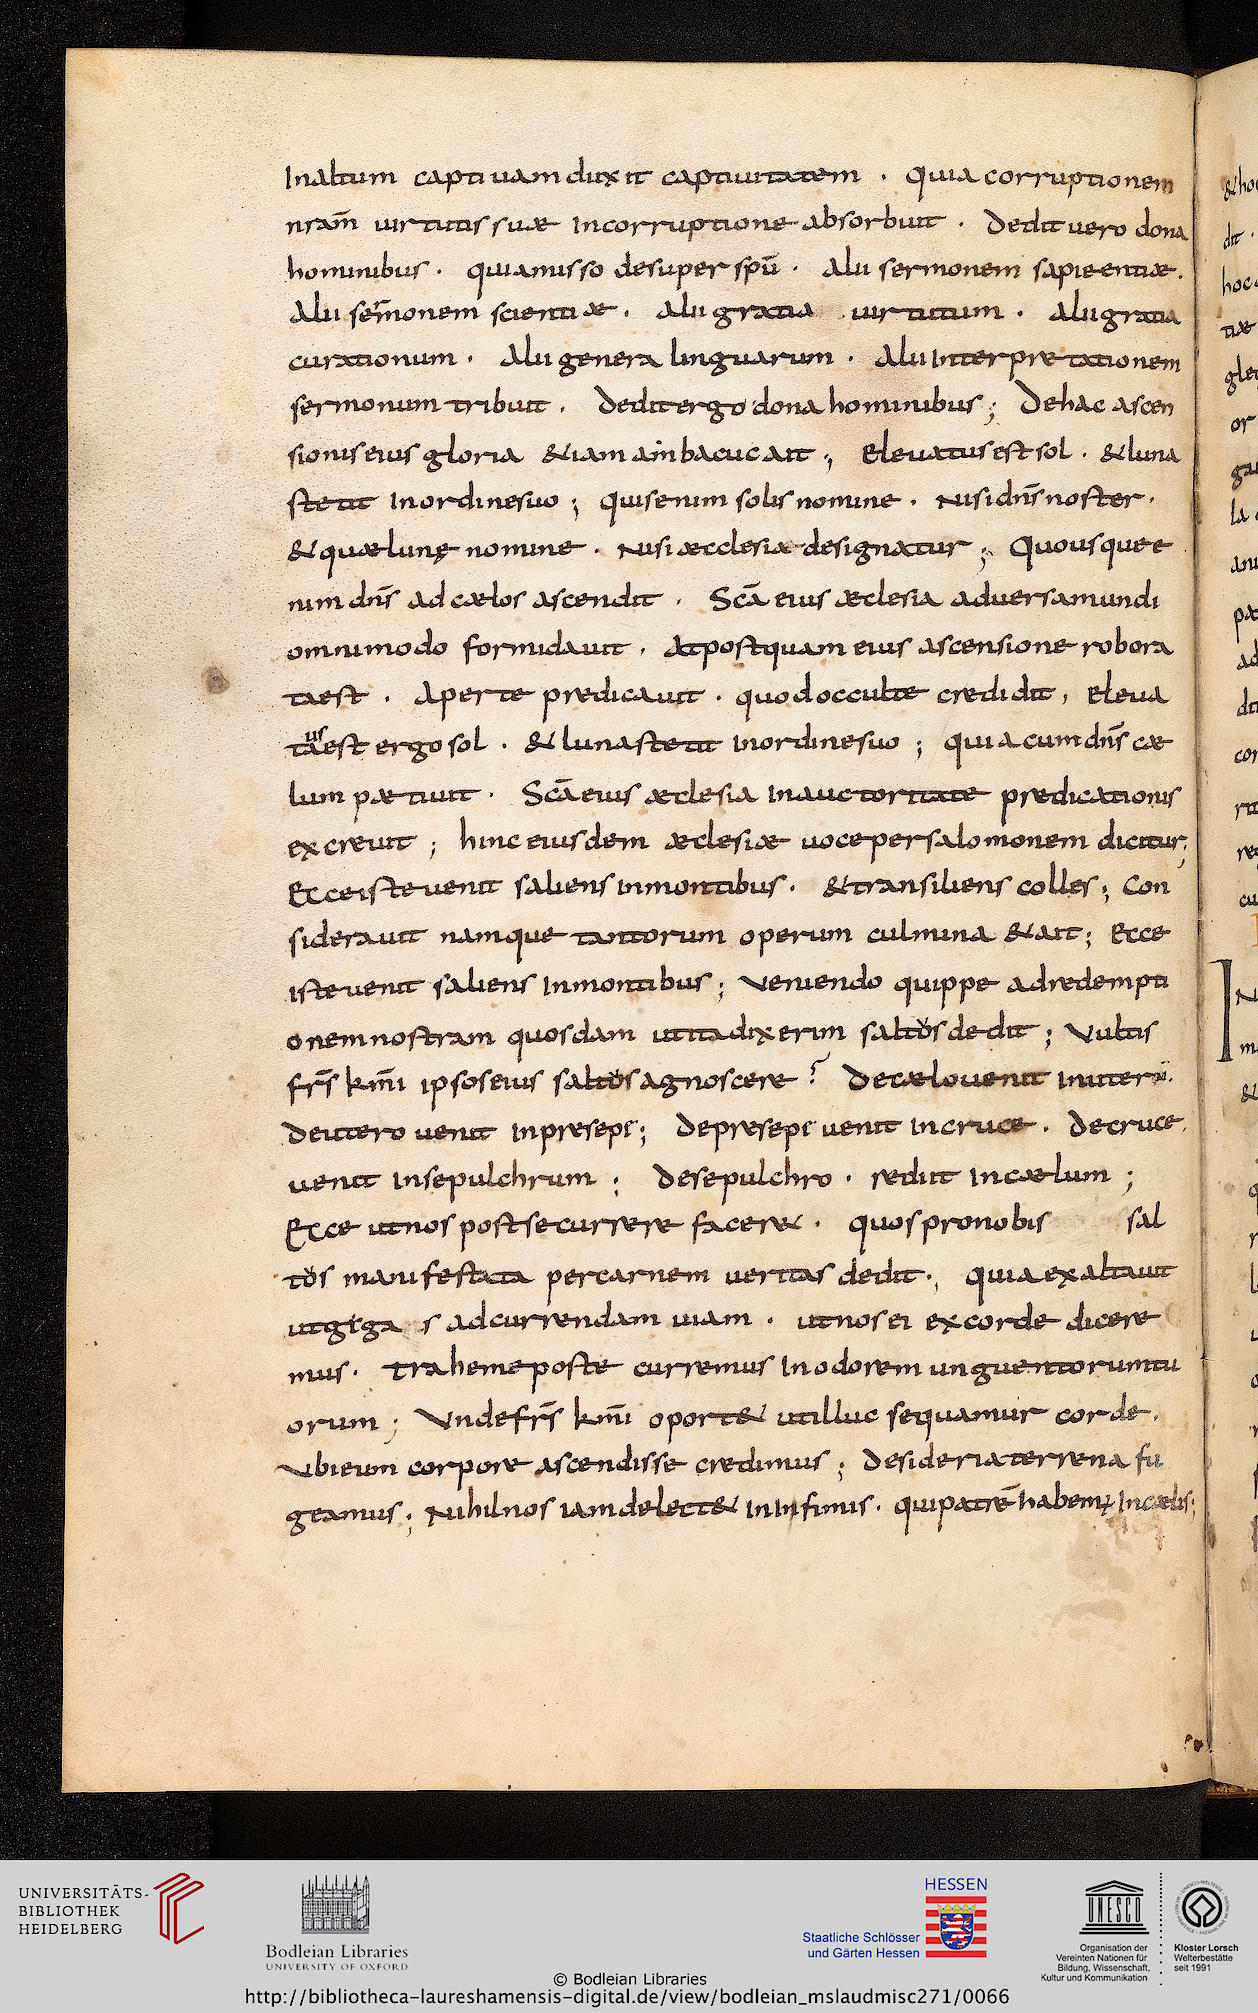 In altum captiuam duxit captiuitatem . Quia corruptionem
nr̄am uirtutis suæ incorruptione absorbuit . Dedit uero dona
hominibus . quia misso desuper sp̄u . alii sermonem sapieentiæ .
Alii sermonem scientiæ . alii gratia uirtutum . alii gratia
curationum . alii genera linguarum . alii interpretationem
sermonum tribuit . Dedit ergo dona hominibus ; De hac ascen
sionis eius gloria & iam ambacuc ait ; Eleuatus est sol . & luna
stetit in ordine suo ; quis enim solis nomine . nisi dn̄s noster .
& quæ lunę nomine . nisi æcclesia designatur ; Quousque e
nim dn̄s ad cælos ascendit . Sc̄a eius æclesia aduersa mundi
omnimodo formidauit . at postquam eius ascensione robora
ta est . aperte predicauit . quod occulte credidit , Eleua
taus est ergo sol . & luna stetit in ordine suo ; quia cum dn̄s cæ
lum pætiuit . Sc̄a eius æclesia in auctoritate predicationis
excreuit ; hinc eiusdem æclesiæ uoce per salomonem dicitur ;
Ecce iste uenit saliens in montibus . & transiliens colles ; Con
siderauit namque tantorum operum culmina & ait ; Ecce
iste uenit saliens in montibus ; Veniendo quippe ad redempti
onem nostram quosdam ut ita dixerim saltos dedit ; Vultis
fr̄s km̄i ipsos eius saltos agnoscere ? De cælo uenit in uterū .
De utero uenit in presepe ; De presepe uenit in cruce . De cruce .
uenit in sepulchrum ; De sepulchro . rediit in cælum ;
Ecce ut nos post se currere facere . quos pro nobis sal
tos manifestata per carnem ueritas dedit . quia exaltauit
ut giga s ad currendam uiam . ut nos ei ex corde dicere
mus . Trahe me post te curremus in odorem unguentorum tu
orum ; Vnde fr̄s km̄i oport& ut illuc sequamur corde .
Vbi eum corpore ascendisse credimus ; Desideria terrena fu
geamus ; Nihil nos iam delect& in infimis . qui patrē habemꝰ in cælis ;
&ho
dit .
tiæ
or
la
pæ
ad
cor
cu
&
UNIVERSITÄTS-
BIBLIOTHEK
HEIDELBERG
Bodleian Libraries
UNIVERSITY OF OXFORD
HESSEN
Staatliche Schlösser
und Gärten Hessen
UNESCO
Organisation der
Vereinten Nationen für
Bildung, Wissenschaft,
Kultur und Kommunikation
Kloster Lorsch
Welterbestätte
seit 1991
© Bodleian Libraries
http://bibliotheca-laureshamensis-digital.de/view/bodleian_mslaudmisc271/0066